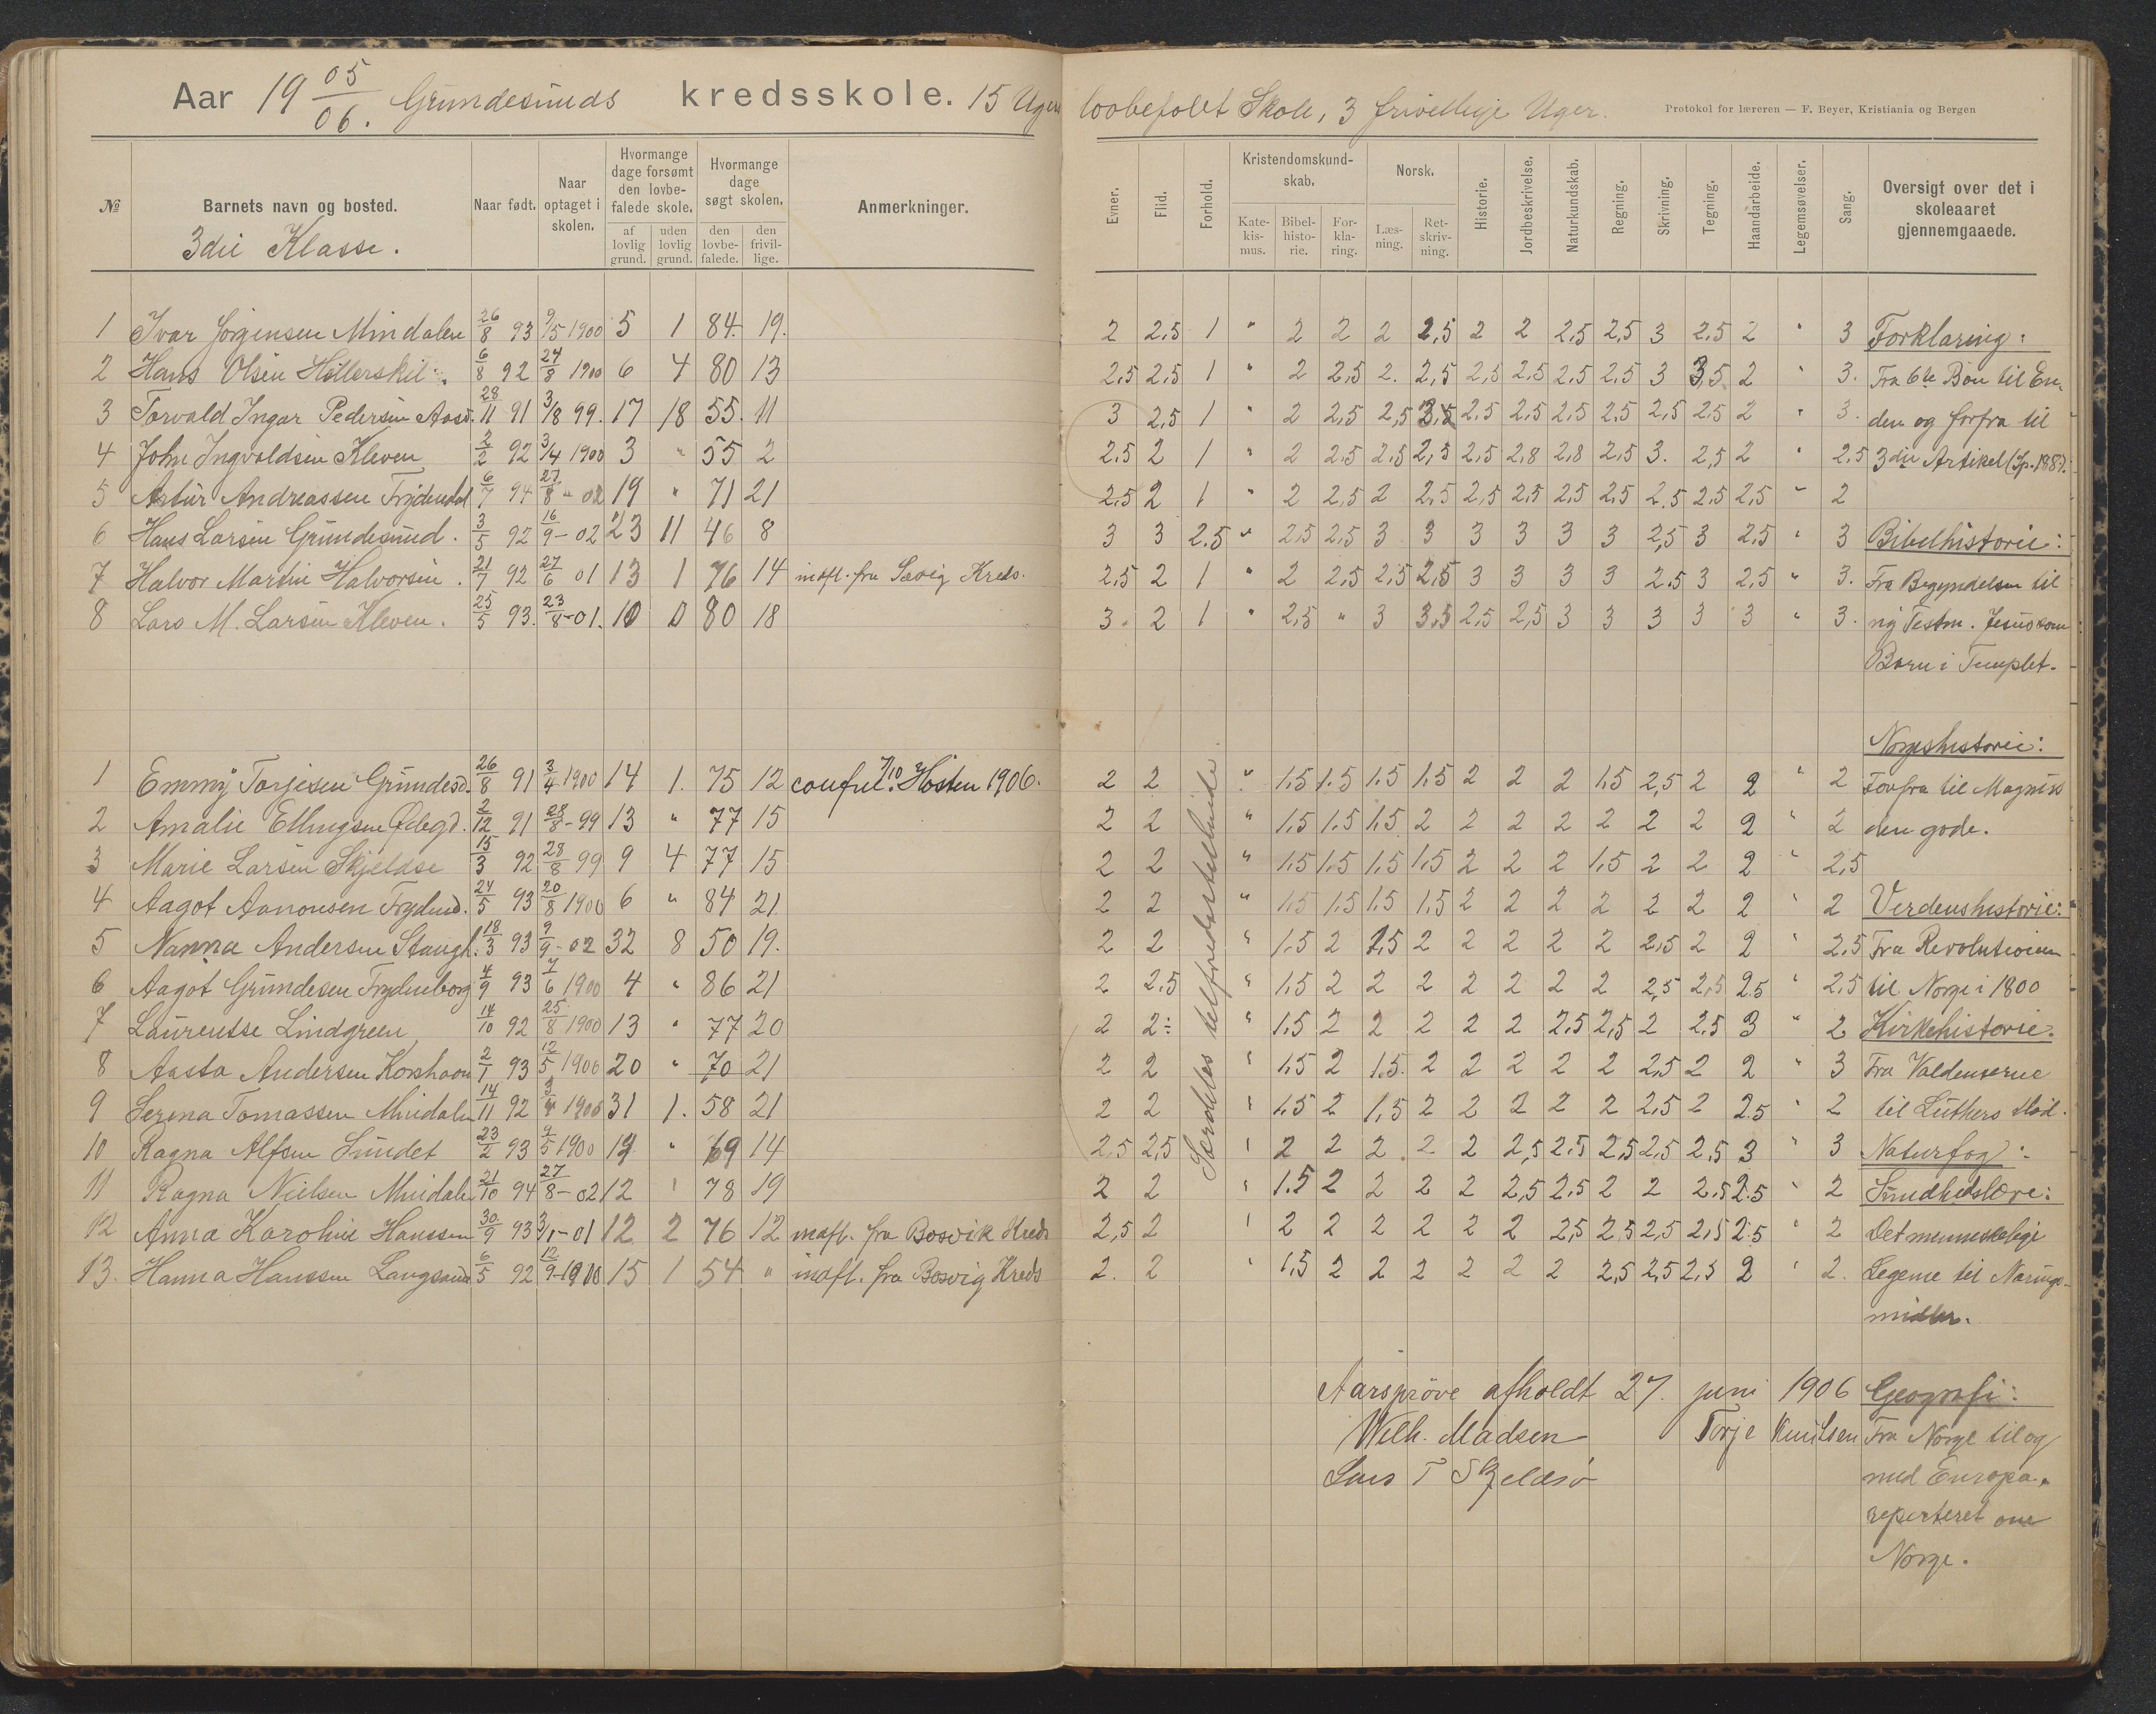 Aar 19 05/06. Grundesunds kredsskole. 15 Uger lovbefalet Skole, 3 frivillige Uger.
Protokol for læreren — F. Beyer, Kristiania og Bergen
№ | Barnets navn og bosted. | Naar født. | Naar optaget i skolen. | Hvormange dage forsømt den lovbefalede skole. | Hvormange dage søgt skolen. | Anmerkninger.
af lovlig grund. | uden lovlig grund. | den lovbefalede. | den frivillige.
3die Klasse.
Evner. | Flid. | Forhold. | Kristendomskundskab. | Norsk. | Historie. | Jordbeskrivelse. | Naturkundskab. | Regning. | Skrivning. | Tegning. | Haandarbeide. | Legemsøvelser. | Sang. | Oversigt over det i skoleaaret gjennemgaaede.
Katekismus. | Bibelhistorie. | Forklaring. | Læsning. | Retskrivning.
1 Ivar Jörgensen Mindalen 26/8 93 9/5 1900 5 1 84. 19. 2 2.5 1 " 2 2 2 2,5 2 2 2,5 2,5 3 2,5 2 " 3 Forklaring:
2 Hans Olsen Hillerskil 6/8 92 24/8 1900 6 4 80 13 2.5 2,5 1 " 2 2,5 2. 2,5 2,5 2.5 2,5 2.5 3 3,5 2 " 3. Fra 6te Bön til En-
3 Torvald Ingar Pedersen Aasd. 28/11 91 3/8 99. 17 18 55. 11 3 2,5 1 " 2 2,5 2,5 3,5 2.5 2,5 2.5 2.5 2,5 2,5 2 " 3. den og forfra til
4 John Ingvaldsen Kleven 2/2 92 3/4 1900 3 " 55 2 2.5 2 1 " 2 2.5 2.5 2,5 2,5 2,8 2,8 2,5 3. 2,5 2 " 2.5 3die Artikel (Sp. 188).
5 Artur Andreassen Frydendal 6/7 94 27/8 " 02 19 " 71 21 2,5 2 1 " 2 2,5 2 2,5 2,5 2,5 2,5 2,5 2.5 2,5 2,5 " 2
6 Hans Larsen Grundesund. 3/5 92 16/9 - 02 23 11 46 8 3 3 2.5 " 2,5 2,5 3 3 3 3 3 3 2,5 3 2,5 " 3 Bibelhistorie:
7 Halvor Martin Halvorsen. 21/7 92 27/6 01 13 1 76 14 indfl. fra Sævig Kreds. 2,5 2 1 " 2 2,5 2,5 2,5 3 3 3 3 2.5 3 2,5 " 3. Fra Begyndelsen til
8 Lars M. Larsen Kleven. 25/5 93. 23/8 - 01. 10 0 80 18 3. 2 1 " 2,5 " 3 3,5 2,5 2,5 3 3 3 3 3 " 3. ny Testm. Jesus som
Barn i Templet.
Norgeshistorie:
1 Emmy Torjesen Grundesd. 26/8 91 3/4 1900 14 1. 75 12 confir. 7/10 Hösten 1906. 2 2 " 1.5 1.5 1.5 1,5 2 2 2 1.5 2,5 2 2 " 2 Forfra til Magnus
2 Amalie Ellingsen Ödegd. 2/12 91 28/8 - 99 13 " 77 15 2 2 " 1.5 1.5 1.5 2 2 2 2 2 2 2 2 " 2 den gode.
3 Marie Larsen Skjeldsø 15/3 92 28/8 99 9 4 77 15 2 2 " 1.5 1.5 1.5 1.5 2 2 2 1.5 2 2 2 " 2,5
4 Aagot Aanonsen Frydend. 24/5 93 20/8 1900 6 " 84 21 2 2 " 1.5 1.5 1.5 1,5 2 2 2 2 2 2 2 " 2 Verdenshistorie:
5 Nanna Andersen 18/3 93 9/9 - 02 32 8 50 19. 2 2 " 1.5 2 1,5 2 2 2 2 2 2,5 2 2 " 2.5 Fra Revolutionen
6 Aagot Grundesen Frydenborg 4/9 93 7/6 1900 4 " 86 21 2 2.5 " 1.5 2 2 2 2 2 2 2 2,5 2,5 2.5 " 2,5 til Norge i 1800
7 Laurentse Lindgreen 14/10 92 25/8 1900 13 " 77 20 2 2÷ " 1.5 2 2 2 2 2 2.5 2,5 2 2.5 3 " 2 Kirkehistorie.
8 Aasta Andersen Korshavn 2/1 93 12/5 1900 20 " 70 21 2 2 " 1.5 2 1.5. 2 2 2 2 2 2,5 2 2 " 3 Fra Valdenserne
9 Serina Tomassen Mindalen 14/11 92 3/4 1900 31 1. 58 21 2 2 " 1.5 2 1,5 2 2 2 2 2 2,5 2 2.5 " 2 til Luthers död.
10 Ragna Alfsen Sundet 23/2 93 9/5 1900 19 " 69 14 2,5 2,5 " 2 2 2 2 2 2,5 2.5 2,5 2,5 2,5 3 " 3 Naturfag:
11 Ragna Nielsen Mindalen 21/10 94 27/8 - 02 12 " 78 19 2 2 " 1.5 2 2 2 2 2,5 2.5 2 2 2.5 2.5 " 2 Sundhedslære:
12 Anna Karoline Hanssen 30/9 93 3/1 - 01 12 2 76 12 indfl. fra Bosvik Kreds 2,5 2 " 2 2 2 2 2 2 2,5 2.5 2,5 2,5 2.5 " 2 Det menneskelige
13. Hanna Hanssen Langsund 6/5 92 12/9 - 1900 15 1 54 " indfl. fra Bosvig Kreds 2. 2 " 1,5 2 2 2 2 2 2 2,5 2,5 2,5 2 " 2. Legeme til Nærings-
midler.
Særdeles tilfredsstillende
Aarspröve afholdt 27. juni 1906 Geografi:
Wilh. Madsen Torje Knudsen Fra Norge til og
Lars T Skjeldsö med Europa.
reperteret om
Norge.